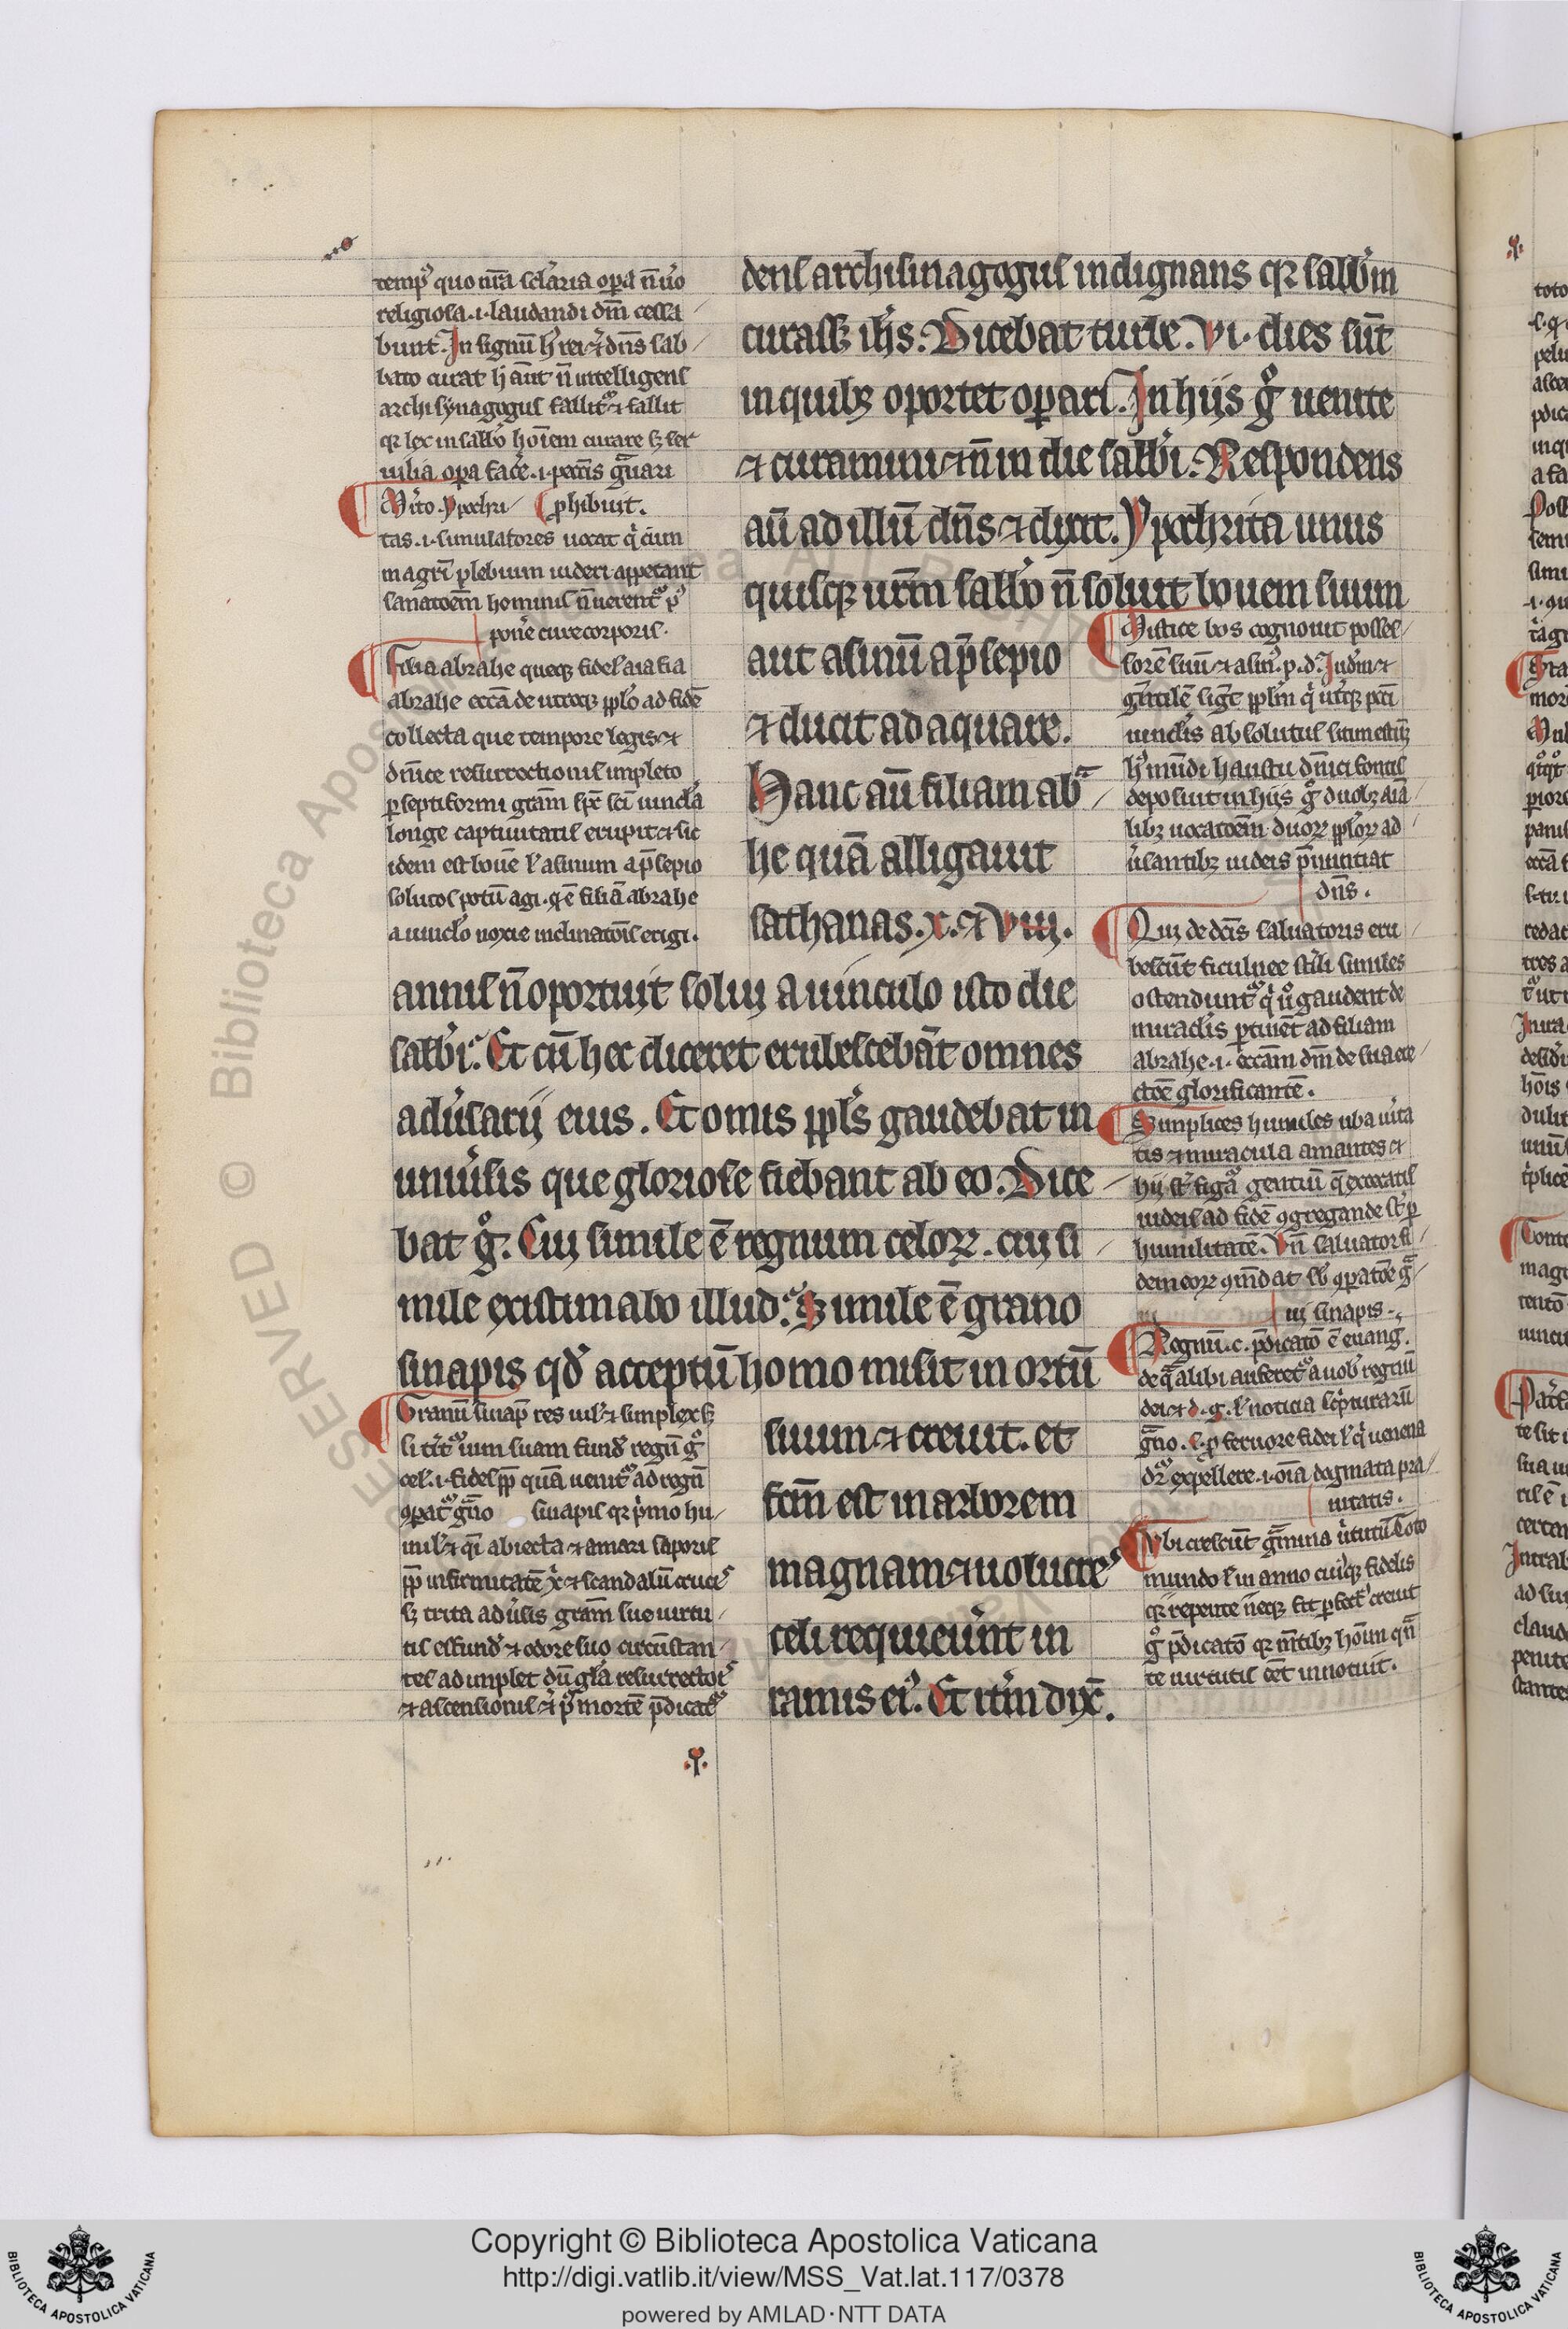 temp᷒ quo nr̄a sclaria oꝑa n̄ uo
religiosa .i. laudandi dm̄ cessa
bunt. In signū hꝰ rei ⁊ dn̄s sab
bato curat h̓ aūt n̄ intelligens
archisynagogus fallitᷣ ⁊ fallit
qꝛ lex in sabb̓o hoīem curare sꝫ ser
uilia oꝑa facͤe .i. pecc̄is gͣuari
ꝓhibuit.
Mͥto ypocri
tas .i. simulatores uocat qͥ cum
magr̄i plebium uideri appetant
sanatōem hominis n̄ uerentᷣ pꝰ
ponͤe cure corporis.
Filia abrahe queqꝫ fidel̓ aīa fīa
abrahe ecc̄a de utroqꝫ ppl̓o ad fidē
collecta que tempore legis ⁊
dnīce resurrectionis impleto
ꝑ septiformi grām sp̄c sc̄i uincl̓a
longe captiuitatis erupit ⁊ sic
idem est bouē l̓ asinum a p̄sepio
solutos potū agi. qͥ ē filiā abrahe
a uinclo noxie inclinatōis erigi.
dens archisinagogus indignans qꝛ sabb̓in
curassꝫ ih̄s. Dicebat turbe. VI. dies sūt
in quibꝫ oportet oꝑari. In hiis gͦ uenite
⁊ curamini ⁊ n̄ in die sabb̓i. Respondens
aū ad illū dn̄s ⁊ dyxit. Ypochrita unus
quisqꝫ ur̄m sabb̓o n̄ soluit bouem suum
aut asinū a p̄sepio
⁊ ducit adaquare.
Hanc aū filiam abͣ
he quā alligauit
sathanas. x. ⁊ viij.
annis n̄ oportuit solui a uinculo isto die
sabb̓i. Et cū hec diceret erubescebāt omnes
adu̓sarij eius. Et omīs ppl̓s gaudebat in
uniu̓sis que gloriose fiebant ab eo. Dice
bat gͦ. Cui simile ē regnum celoꝝ. cui si
mile existimabo illud. Simile ē grano
sinapis qd̓ acceptū homo misit in ortū
suum ⁊ creuit. et
fcm̄ est in arborem
magnam ⁊ uolucreˢ
celi requieuͤnt in
ramis eiꝰ. Et itͤm dyx̄.
Mistice bos cognouit posses
sorē suū ⁊ asinꝰ. p. d. Iud̓m ⁊
gentilē sigͭ ppl̓m qͥ ut̓qꝫ pcc̄i
uinclis absolutus sitim estūqꝫ
hꝰ mūdi haustu dn̄ici fontis
deposuit in hiis gͦ duobꝫ aīa
libꝫ uocatōem duoꝝ ppl̓oꝝ ad
u̓santibꝫ iudeis p̄nuntiat
dn̄s.
Qui de dc̄is saluatoris eru
bescūt ficulnee stͤili similes
ostenduntᷣ qͥ uͦ gaudent de
miraclis ꝑtinēt ad filiam
abrahe .i. ecc̄am dm̄ de sua ere
ctōe glorificantē.
Simplices humiles uͤba uͥta
tis ⁊ miracula amantes ⁊
hij st̓ figͣ gentiū q̄ excecatis
iudeis ad fidē ꝯgregande st̓ ꝑ
humilitatē. Vn̄ saluator fi
dem eoꝝ ꝯmdat sb̓ ꝯꝑatōe gͣ
ni sinapis.
Regnū. c. p̄dicatō ē euang̓.
de qͣ alibi auferetᷣ a uob̓ regnū
dei ⁊ d. g. l̓ noticia sc̓pturarū
gͣno. s. ꝓ feruore fidei l̓ qͥ uenena
dr̄ expellere .i. oīa dogmata pra
uitatis.
Vbi crescūt gͤmina uͥtutū Toto
mundo l̓ in animo cuiꝰqꝫ fidelis
qꝛ repente neqꝫ fit ꝑfectꝰ creuit
gͦ p̄dicatō qꝛ mentibꝫ hoīum qͣn
te uirtutis eēt innotuit.
Granū sinap̄ res uil̓ ⁊ simplex sꝫ
si titͤᷣ uim suam fund̓ regnū gͦ
cel̓ .i. fidel̓ pp̄ quā uenitᷣ ad regn̄
ꝯꝑatᷣ gͣno sinapis qꝛ pͥmo hu
mil̓ ⁊ qͥ abiecta ⁊ amari saporis
pp̄ infirmitatē x̄ ⁊ scandalū crucis
sꝫ trita adu̓sis grām sue uirtu
tis effund̓ ⁊ odore suo circūstan
tes adimplet dū gl̓a resurrectōis
⁊ ascensionis ⁊ pꝰ mortē p̄dicatᷣ
Copyright © Biblioteca Apostolica Vaticana
http://digi.vatlib.it/view/MSS_Vat.lat.117/0378
powered by AMLAD·NTT DATA